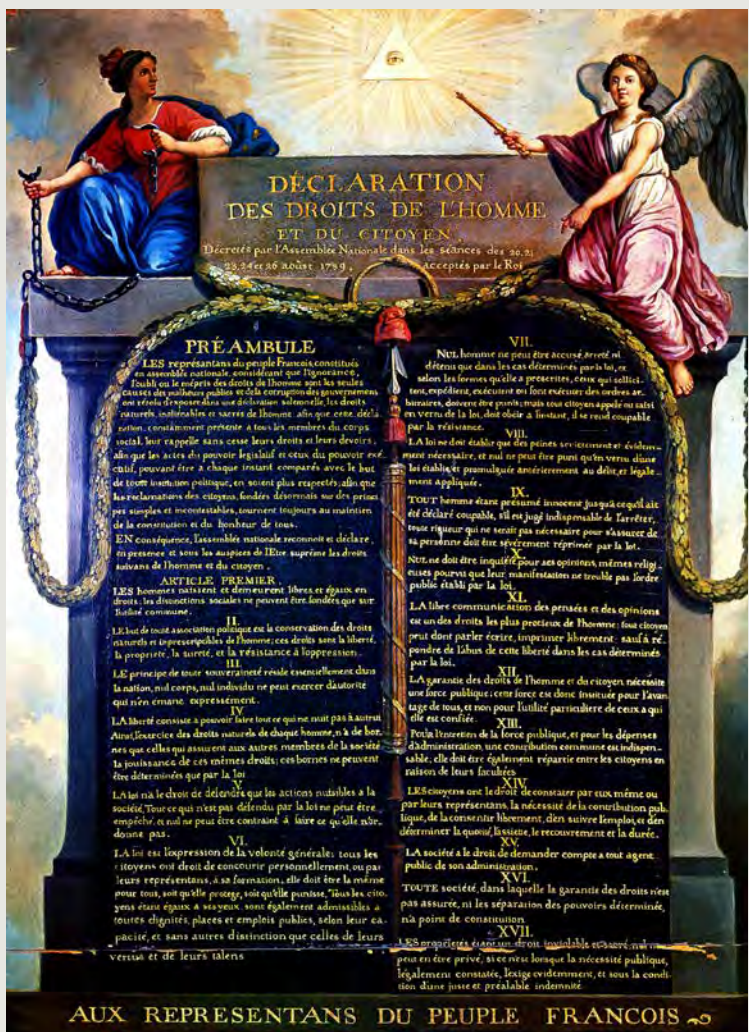 DÉCLARATION
DES DROITS DE L'HOMME
ET DU CITOYEN
Décretés par l'Assemblée Nationale dans les séances des 20, 21
23, 24 et 26 aoust 1789, acceptés par le Roi
PRÉAMBULE
LES représentans du peuple François, constitués
en assemblée nationale, considérant que l'ignorance,
l'oubli ou le mépris des droits de l'homme sont les seules
causes des malheurs publics et de la corruption des gouvernemens
ont résolu d'exposer dans une déclaration solemnelle, les droits
naturels, inaliénables et sacrés de l'homme afin que cette décla
ration, constamment présente a tous les membres du corps
social, leur rappelle sans cesse leurs droits et leurs devoirs,
afin que les actes du pouvoir legislatif et ceux du pouvoir exé
cutif, pouvant être a chaque instant comparés avec le but
de toute institution politique, en soient plus respectés; afin que
les reclamations des citoyens, fondées désormais sur des princi
pes simples et incontestables, tournent toujours au maintien
de la constitution et du bonheur de tous.
EN conséquence, l'assemblée nationale reconnoit et déclare,
en presence et sous les auspices de l'Etre suprême les droits
suivans de l'homme et du citoyen.
ARTICLE PREMIER.
LES hommes naissent et demeurent libres et égaux en
droits; les distinctions sociales ne peuvent être fondées que sur
l'utilité commune.
II.
LE but de toute association politique est la conservation des droits
naturels et imprescriptibles de l'homme; ces droits sont la liberté,
la propriete, la sureté, et la résistance à l'oppression.
III.
LE principe de toute souveraineté réside essentiellement dans
la nation, nul corps, nul individu ne peut exercer d'autorité
qui n'en émane expressément.
IV
LA liberté consiste a pouvoir faire tout ce qui ne nuit pas a autrui
Ainsi, l'exercice des droits naturels de chaque homme, n'a de bor-
nes que celles qui assurent aux autres membres de la société
la jouissance de ces mêmes droits; ces bornes ne peuvent
être déterminées que par la loi
V
LA loi n'a le droit de défendre que les actions nuisibles a la
société. Tout ce qui n'est pas défendu par la loi ne peut être
empêché, et nul ne peut être contraint à faire ce qu'elle n'or-
donne pas.
VI.
LA loi est l'expression de la volonté générale; tous les
citoyens ont droit de concourir personnellement, ou par
leurs représentans, à sa formation; elle doit être la même
pour tous, soit qu'elle protege, soit qu'elle punisse. Tous les cito
yens étans égaux à ses yeux, sont également admissibles à
toutes dignités, places et emplois publics, selon leur ca
pacité, et sans autres distinction que celles de leurs
vertus et de leurs talens
VII.
NUL homme ne peut être accusé, arreté ni
détenu que dans les cas déterminés par la loi, et
selon les formes qu'elle a prescrites, ceux qui sollici-
tent, expédient, exécutent ou font exécuter des ordres ar-
bitraires, doivent être punis; mais tout citoyen appelé ou saisi
en vertu de la loi, doit obéir a l'instant, il se rend coupable
par la résistance.
VIII.
LA loi ne doit établir que des peines strictement et évidem-
ment nécessaire, et nul ne peut être puni qu'en vertu d'une
loi établie et promulguée antérierement au délit, et légale-
ment appliquée.
IX.
TOUT homme étant présumé innocent jusqu'à ce qu'il ait
été déclaré coupable, s'il est jugé indispensable de l'arrêter,
toute rigueur qui ne serait pas nécessaire pour s'assurer de
sa personne doit être sévèrement réprimée par la loi.
X.
NUL ne doit être inquiété pour ses opinions, mêmes religi-
euses pourvus que leur manifestation ne trouble pas l'ordre
public établi par la loi.
XI.
LA libre communication des pensées et des opinions
est un des droits les plus precieux de l'homme; tout citoyen
peut dont parler écrire, imprimer librement: sauf à ré
pondre de l'abus de cette liberté dans les cas déterminés
par la loi.
XII.
LA garantie des droits de l'homme et du citoyen nécessite
une force publique; cette force est donc instituée pour l'avan
tage de tous, et non pour l'utilité particuliere de ceux a qui
elle est confiée.
XIII.
Pour l'entretien de la force publique, et pour les dépenses
d'administration, une contribution commune est indispen-
sable; elle doit être également répartie entre les citoyens en
raison de leurs facultées
XIV.
LES citoyens ont le droit de constater par eux même ou
par leurs représentans, la nécessité de la contribution pub-
lique, de la consentir librement, d'en suivre l'emploi, et d'en
déterminer la quotité, l'assiette, le recouvrement et la durée.
XV.
LA société a le droit de demander compte a tout agent
public de son administration.
XVI.
TOUTE société, dans laquelle la garantie des droits n'est
pas assurée, ni les séparation des pouvoirs déterminée,
n'a point de constitution
XVII.
LES propriétés étant un droit inviolable et sacré, nul ne
peut en être privé, si ce n'est lorsque la nécessité publique,
légalement constatée, l'exige evidemment, et sous la condi-
tion d'une juste et préalable indemnité
AUX REPRESENTANS DU PEUPLE FRANCOIS